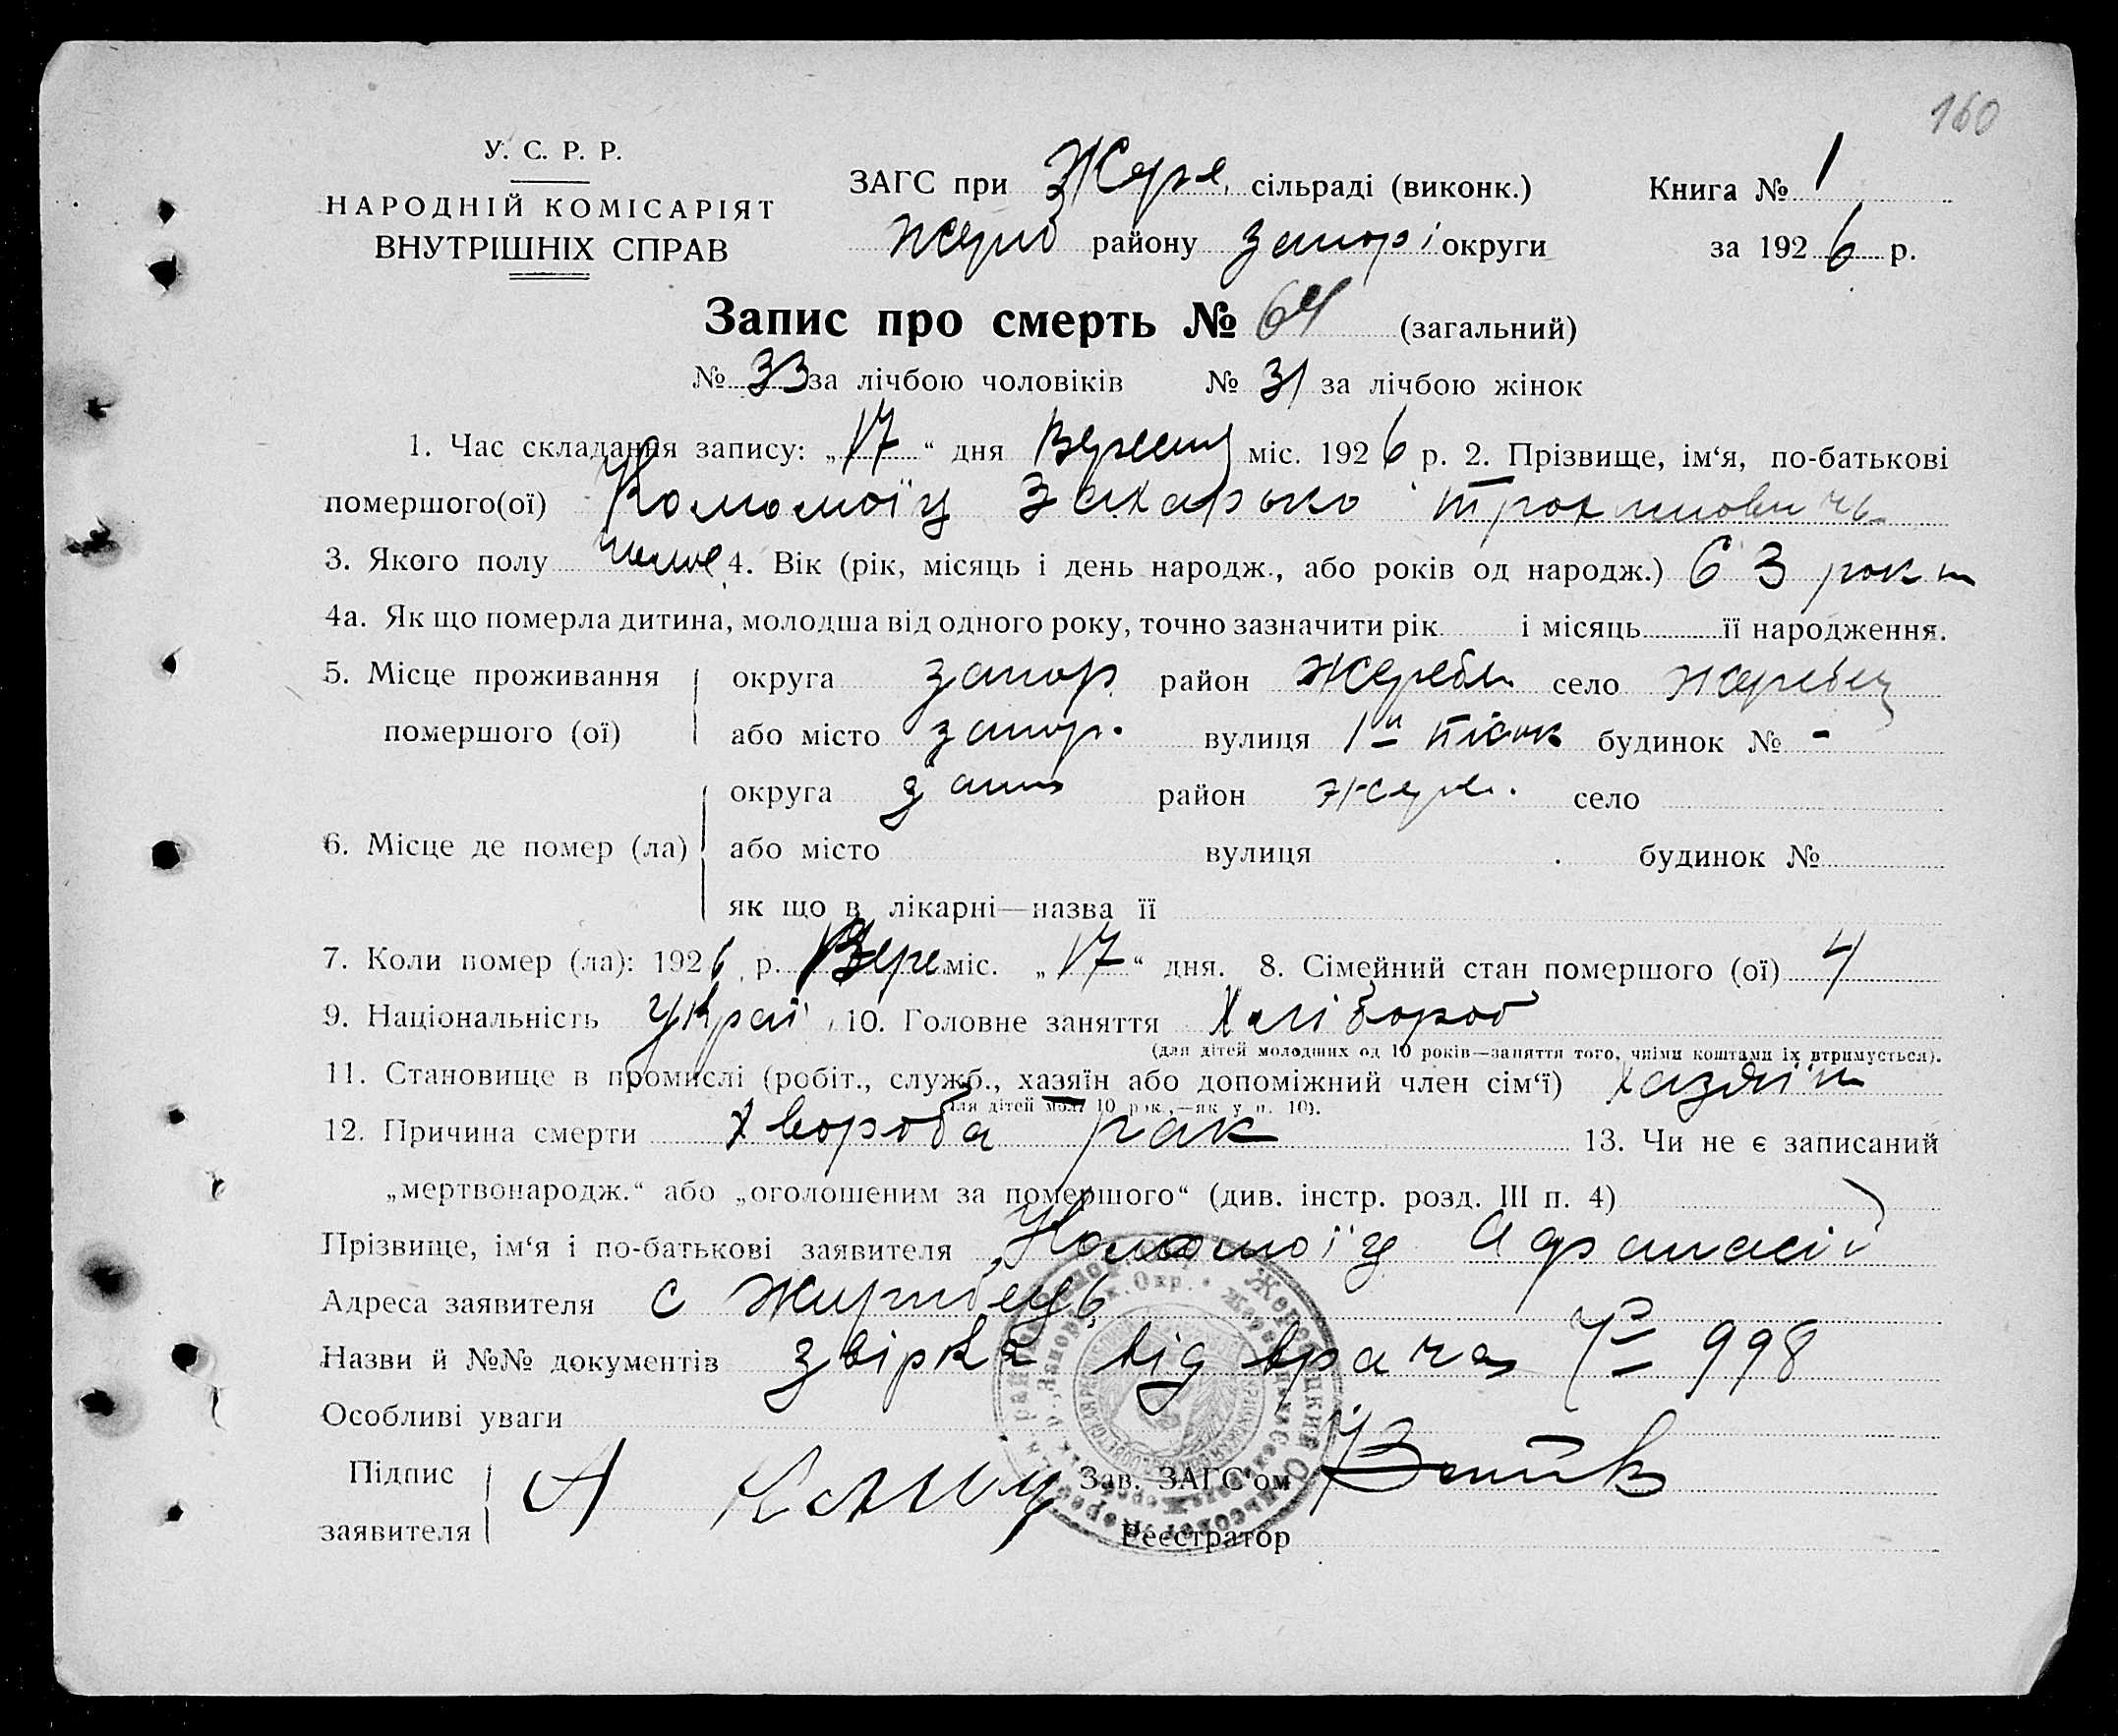 160
У. С. Р. Р.
НАРОДНІЙ КОМІСАРІЯТ
ВНУТРІШНІХ СПРАВ
ЗАГС при Жере. сільраді (виконк.) Книга № 1
Жереб району Запорі округи за 1926 р.
Запис про смерть № 64 (загальний)
№ 33 за лічбою чоловіків № 31 за лічбою жінок
1. Час складання запису: „17“ дня Вересня міс. 1926 р. 2. Прізвище, ім‘я, по-батькові
помершого(ої) Коломоїц Захарько Трохимович
3. Якого полу 4. Вік (рік, місяць і день народж., або років од народж.) 63 роки
4а. Як що померла дитина, молодша від одного року, точно зазначити рік і місяць її народження.
5. Місце проживання округа Запор район Жереб село Жеребец
помершого (ої) або місто запор. вулиця 1й будинок № -
округа Запо район Жере. село
6. Місце де помер (ла) або місто вулиця будинок №
як що в лікарні—назва її
7. Коли помер (ла): 1926 р. Вере міс. „17“ дня. 8. Сімейний стан помершого (ої) 4
9. Національність Украї 10. Головне заняття Хлібороб
(для дітей молодших од 10 років—заняття того, чиїми коштами їх втримується).
11. Становище в промислі (робіт., служб., хазяїн або допоміжний член сім‘ї) хазяїн
(для дітей мол. 10 рок.,—як у п. 10).
12. Причина смерти Хвороба рак 13. Чи не є записаний
„мертвонародж.“ або „оголошеним за помершого“ (див. інстр. розд. III п. 4)
Прізвище, ім‘я і по-батькові заявителя Коломоїц Афанасій
Адреса заявителя с Жеребець
Назви й №№ документів звірка від врача № 998
Особливі уваги
Підпис заявителя А Зав. ЗАГС'ом
Реєстратор